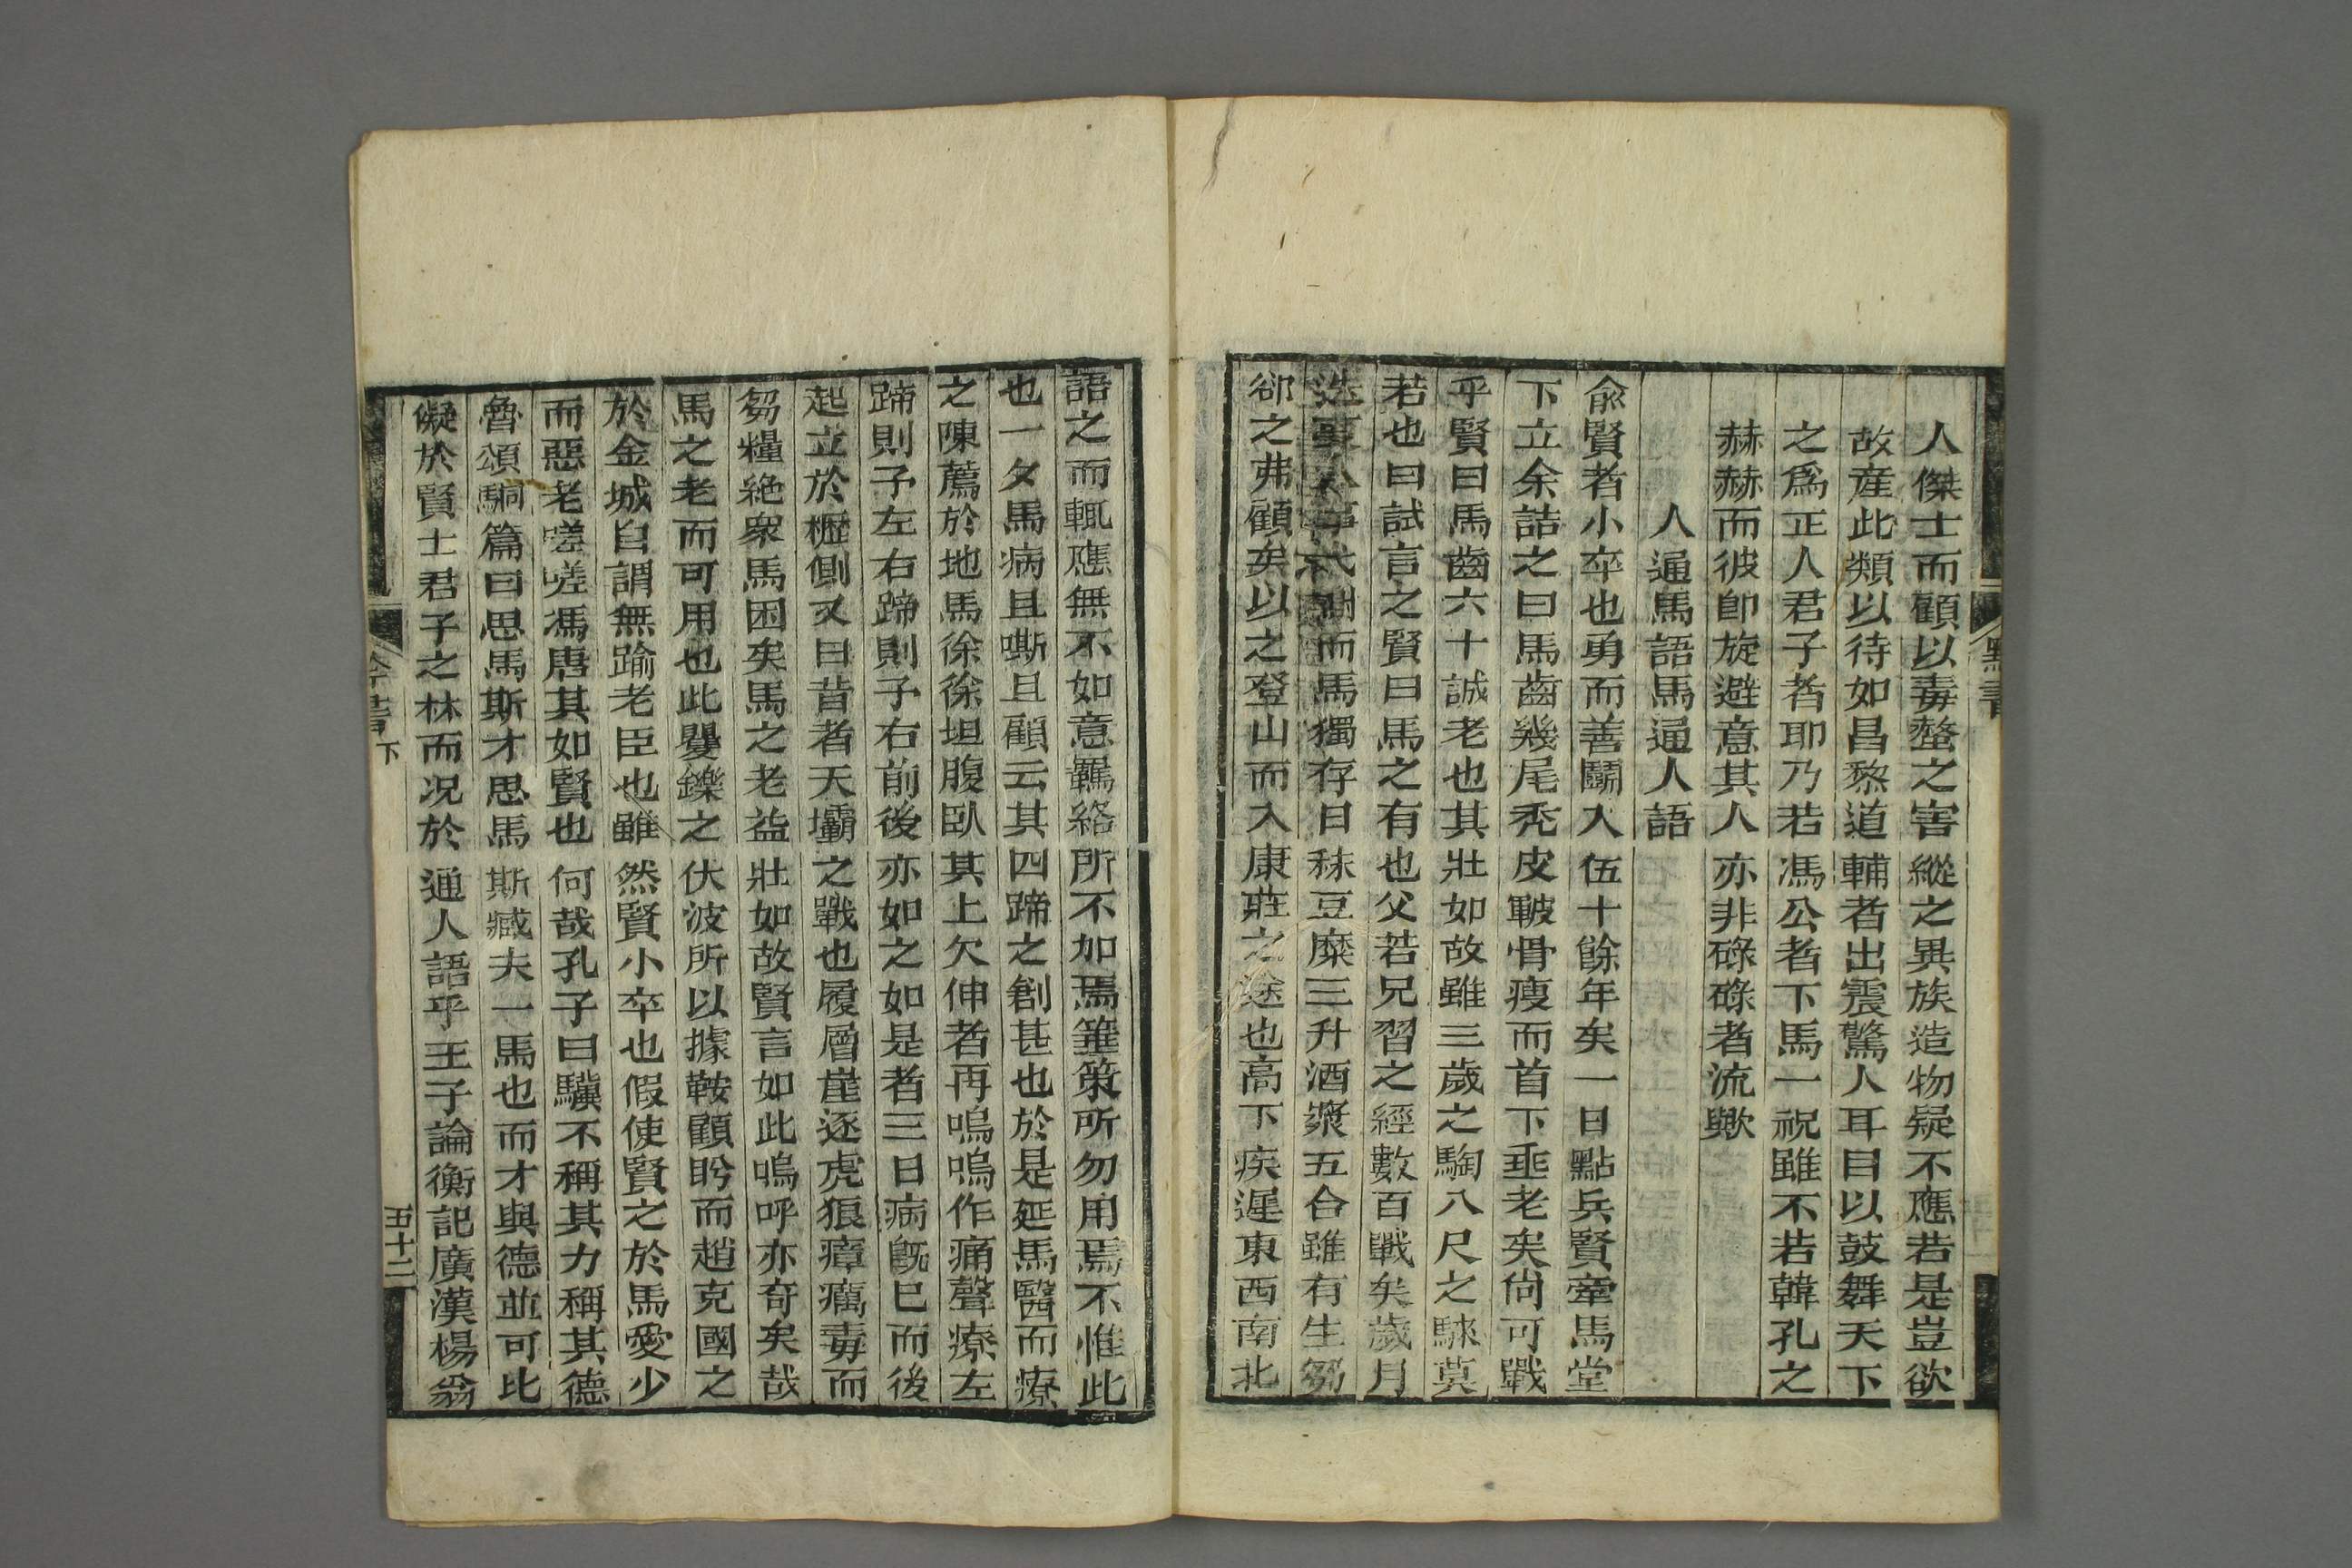 人傑士而顧以毒螫之害縱之異族造物疑不應若是豈欲
故產此類以待如昌黎道輔者出震驚人耳目以鼓舞天下
之爲正人君子者耶乃若馮公者下馬一祝雖不若韓孔之
赫赫而彼卽旋避意其人亦非碌碌者流歟
人通馬語馬通人語
俞賢者小卒也勇而善鬭入伍十餘年矣一日點兵賢牽馬堂
下立余詰之曰馬齒幾尾禿皮皸骨瘦而首下垂老矣尙可戰
乎賢曰馬齒六十誠老也其壯如故雖三歲之騊八尺之騋莫
若也曰試言之賢曰馬之有也父若兄習之經數百戰矣歲月
而馬獨存日秣豆糜三升酒漿五合雖有生芻
卻之弗顧矣以之登山而入康莊之途也高下疾遲東西南北
語之而輒應無不如意羈絡所不加焉箠策所勿用焉不惟此
也一夕馬病且嘶且顧云其四蹄之創甚也於是延馬醫而療
之陳薦於地馬徐徐坦腹臥其上欠伸者再嗚嗚作痛聲療左
蹄則予左右蹄則予右前後亦如之如是者三日病旣已而後
起立於櫪側又曰昔者天壩之戰也履層崖逐虎狼瘴癘毒而
芻糧絶衆馬困矣馬之老益壯如故賢言如此嗚呼亦奇矣哉
馬之老而可用也此矍鑠之伏波所以據鞍顧盻而趙充國之
於金城自謂無踰老臣也雖然賢小卒也假使賢之於馬愛少
而惡老嗟嗟馮唐其如賢也何哉孔子曰驥不稱其力稱其德
魯頌駉篇曰思馬斯才思馬斯臧夫一馬也而才與德並可比
儗於賢士君子之林而况於通人語乎王子論衡記廣漢楊翁
下
五十二